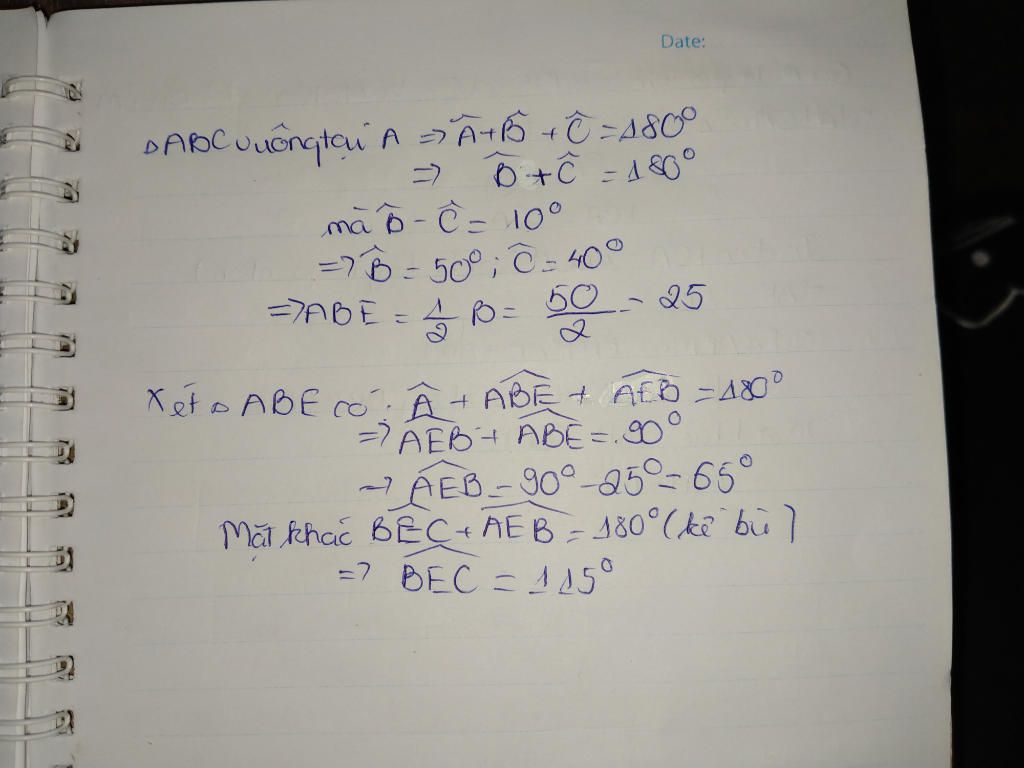 Date:
△ABC vuông tại A ⇒ Â + B̂ + Ĉ = 180°
⇒ B̂ + Ĉ = 180°
mà B̂ - Ĉ = 10°
⇒ B̂ = 50° ; Ĉ = 40°
⇒ ABE = 1/2 B = 50/2 = 25
Xét △ ABE có : Â + \widehat{ABE} + \widehat{AEB} = 180°
⇒ \widehat{AEB} + \widehat{ABE} = 90°
⇒ \widehat{AEB} = 90° - 25° = 65°
Mặt khác \widehat{BEC} + \widehat{AEB} = 180° (kề bù)
⇒ \widehat{BEC} = 115°